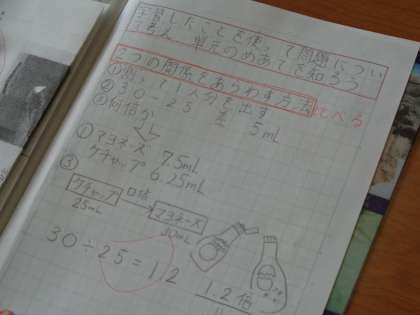 学習したことを使って問題につい
て考え、単元のめあてを知ろう
2つの関係をあらわす方法
①割って1人分を出す
②30-25を
5mL
③何倍か
比べる
①マヨネーズ 7.5mL
ケチャップ 6.25mL
③
ケチャップ □倍 マヨネーズ
25mL 30mL
30÷25=1.2
1.2倍